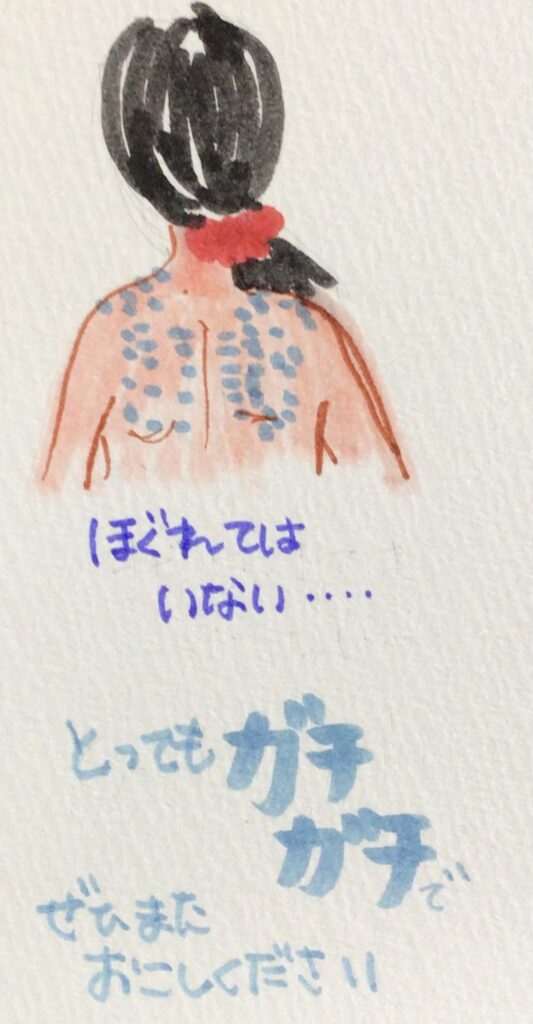 ほぐれては
いない‥‥
とってもガチ
ガチで
ぜひまた
おこしください